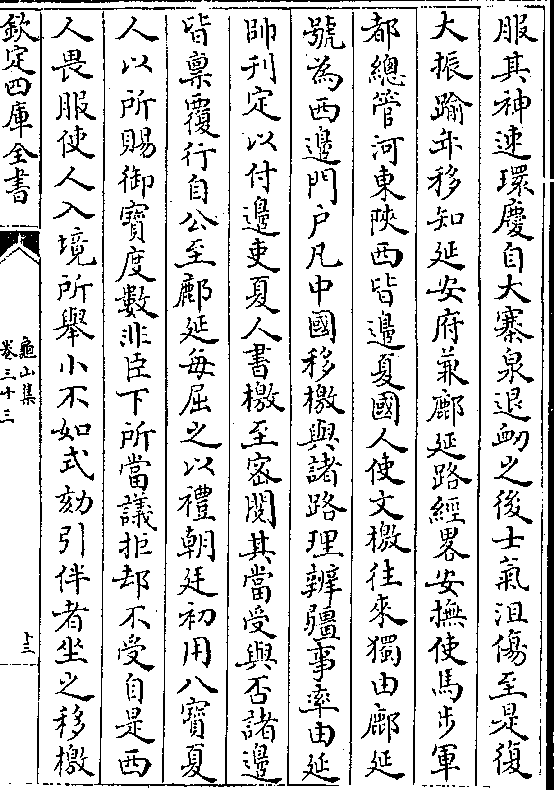 服其神速環慶自大寨泉退衂之後士氣沮傷至是復
大振踰年移知延安府兼鄜延路經畧安撫使馬步軍
都總管河東陜西皆邊夏國人使文檄往來獨由鄜延
號為西邊門户凡中國移檄與諸路理辨疆事率由延
帥刋定以付邊吏夏人書檄至密閲其當受與否諸邊
皆禀覆行自公至鄜延每屈之以禮朝廷初用八寳夏
人以所賜御寳度數非臣下所當議拒却不受自是西
人畏服使人入境所舉小不如式劾引伴者坐之移檄
欽定四庫全書
龜山集
卷三十三
十三